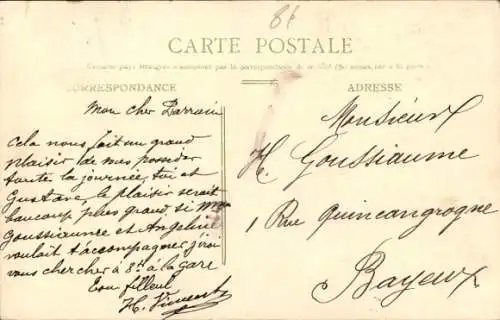 86
CARTE POSTALE
Certains pays étrangers n'acceptent pas la correspondance de ce côté (Se renseigner à la poste)
CORRESPONDANCE
ADRESSE
Mon cher Parrain
Cela nous fait un grand
plaisir de nous posseder
toute la journée, toi et
Gustave, le plaisir serait
beaucoup plus grand, si Mme
Goussiaume et Angeline
voulait t'accompagner j'irai
vous chercher à 8h à la Gare
Ton filleul
H. Vincent
Monsieur
H. Goussiaume
1 Rue Quincangrogne
Bayeux